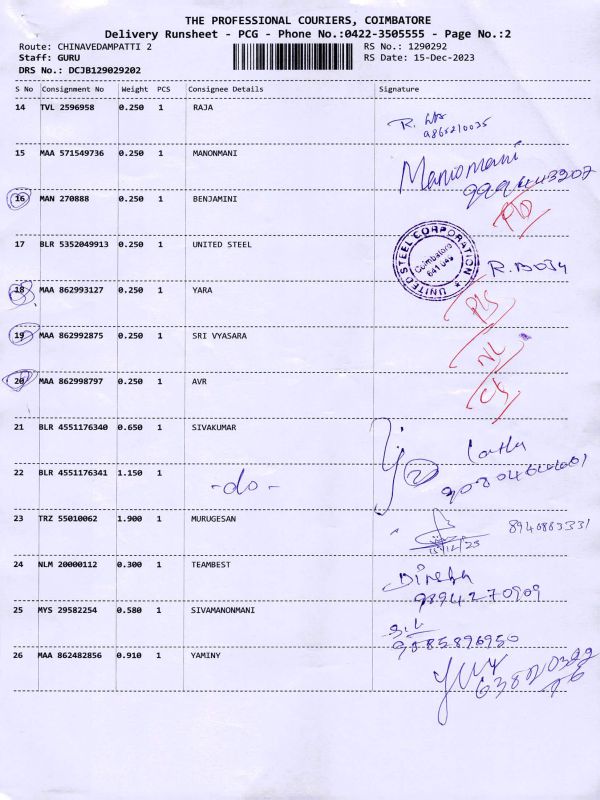 THE PROFESSIONAL COURIERS, COIMBATORE
Delivery Runsheet - PCG - Phone No.:0422-3505555 - Page No.:2
Route: CHINAVEDAMPATTI 2 RS No.: 1290292
Staff: GURU RS Date: 15-Dec-2023
DRS No.: DCJB129029202
S No Consignment No Weight PCS Consignee Details Signature
14 TVL 2596958 0.250 1 RAJA
15 MAA 571549736 0.250 1 MANONMANI Manomani
16 MAN 270888 0.250 1 BENJAMINI
17 BLR 5352049913 0.250 1 UNITED STEEL
UNITED STEEL CORPORATION
Coimbatore
641 049
18 MAA 862993127 0.250 1 YARA
19 MAA 862992875 0.250 1 SRI VYASARA NL
20 MAA 862998797 0.250 1 AVR
21 BLR 4551176340 0.650 1 SIVAKUMAR
22 BLR 4551176341 1.150 1 -do- 2
23 TRZ 55010062 1.900 1 MURUGESAN 8940863331
15/12/23
24 NLM 20000112 0.300 1 TEAMBEST
9894270909
25 MYS 29582254 0.580 1 SIVAMANONMANI
9085896950
26 MAA 862482856 0.910 1 YAMINY